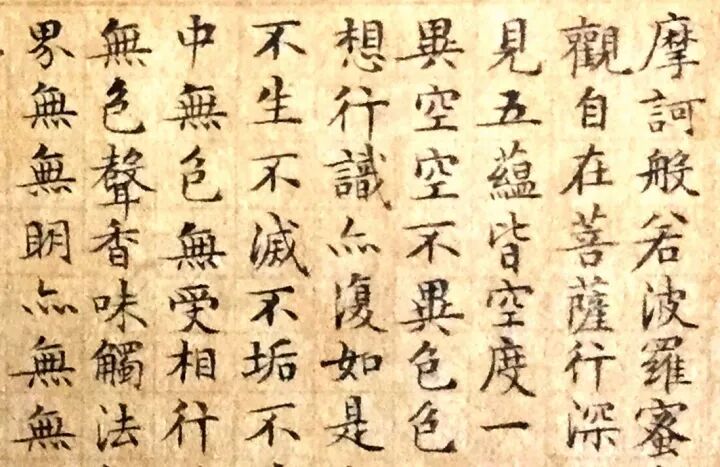 摩訶般若波羅蜜
觀自在菩薩行深
見五蘊皆空度一
異空空不異色色
想行識亦復如是
不生不滅不垢不
中無色無受相行
無色聲香味觸法
界無無明亦無無